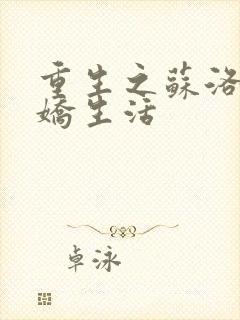 重生之蘇洛
嬌生活
卓泳